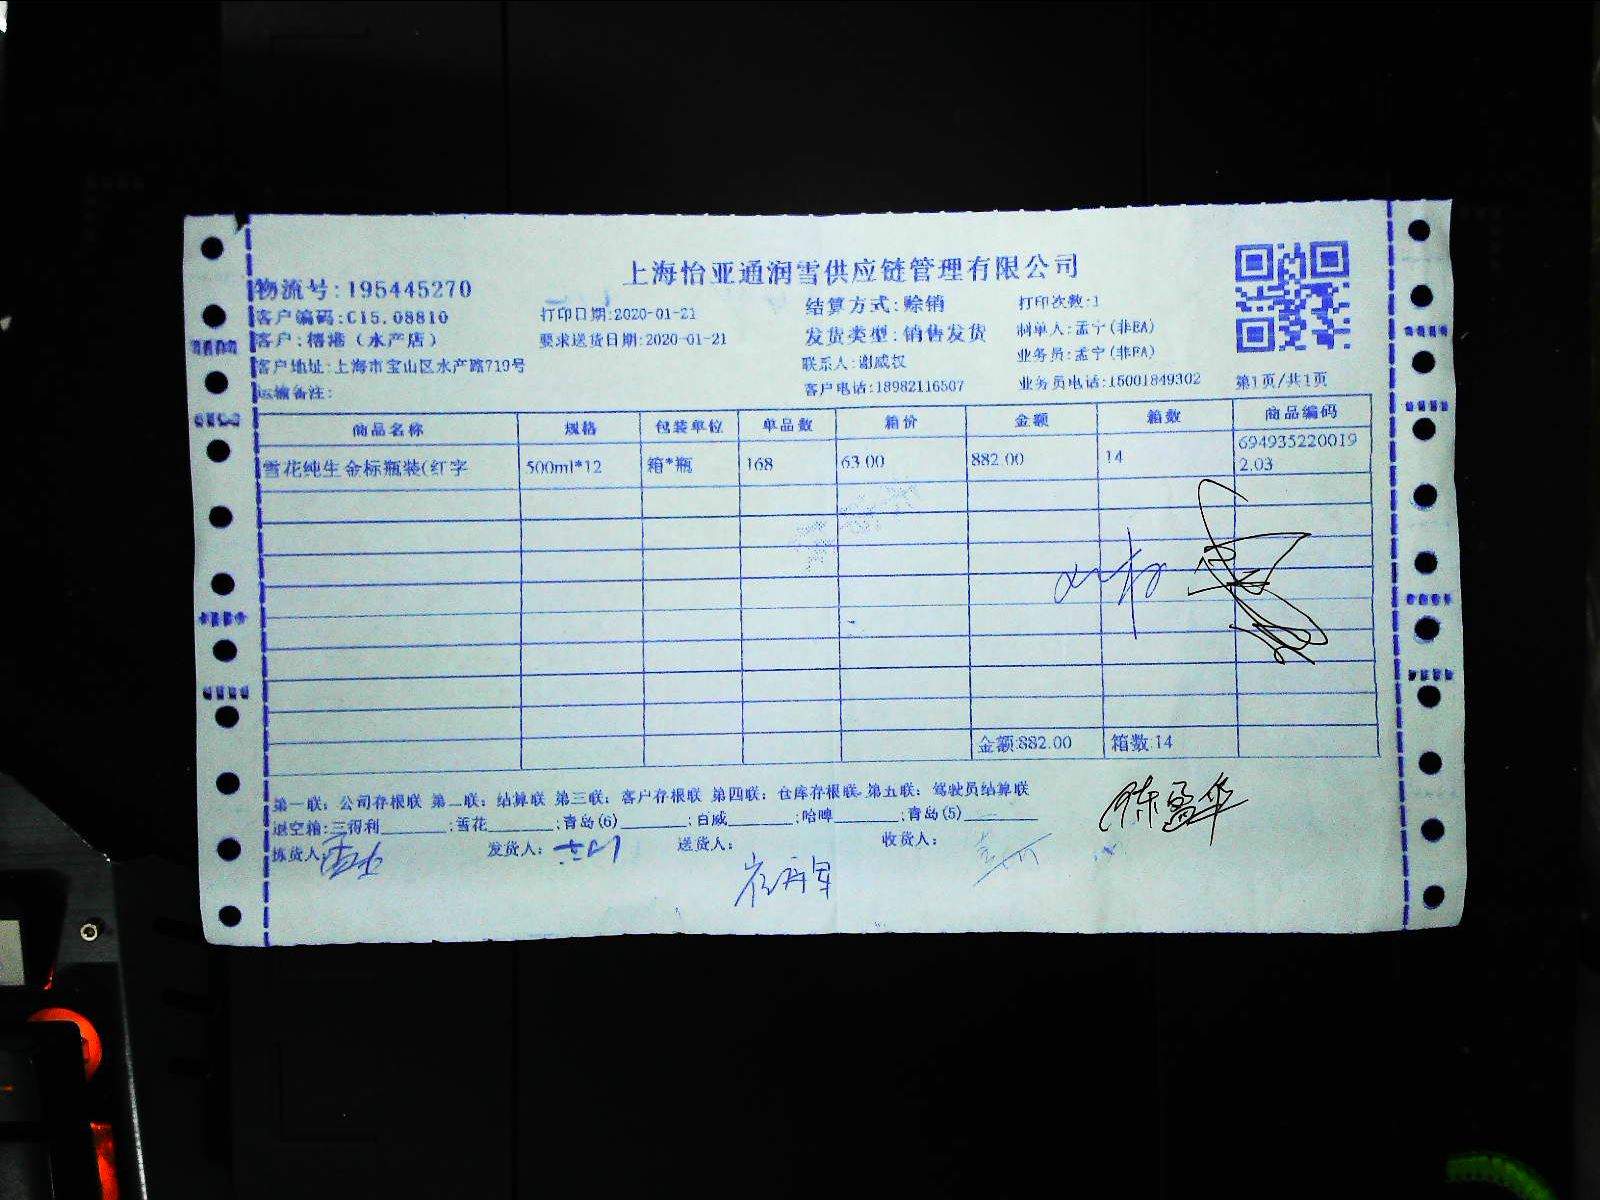 上海怡亚通润雪供应链管理有限公司
物流号:195445270
客户编码:C15.08810 打印日期:2020-01-21 结算方式:赊销 打印次数:1
客户:楿港（水产店） 要求送货日期:2020-01-21 发货类型:销售发货 制单人:孟宁(非EA)
客户地址:上海市宝山区水产路719号 联系人:谢威权 业务员:孟宁(非EA)
运输备注: 客户电话:18982116507 业务员电话:15001849302 第1页/共1页
商品名称 规格 包装单位 单品数 箱价 金额 箱数 商品编码
雪花纯生金标瓶装(红字 500ml*12 箱*瓶 168 63.00 882.00 14 694935220019
2.03
金额:882.00 箱数:14
第一联：公司存根联 第二联：结算联 第三联：客户存根联 第四联：仓库存根联 第五联：驾驶员结算联
退空箱:三得利______;雪花______;青岛(6)______;百威______;哈啤______;青岛(5)______
陈盈华
拣货人: 发货人: 送货人: 收货人: